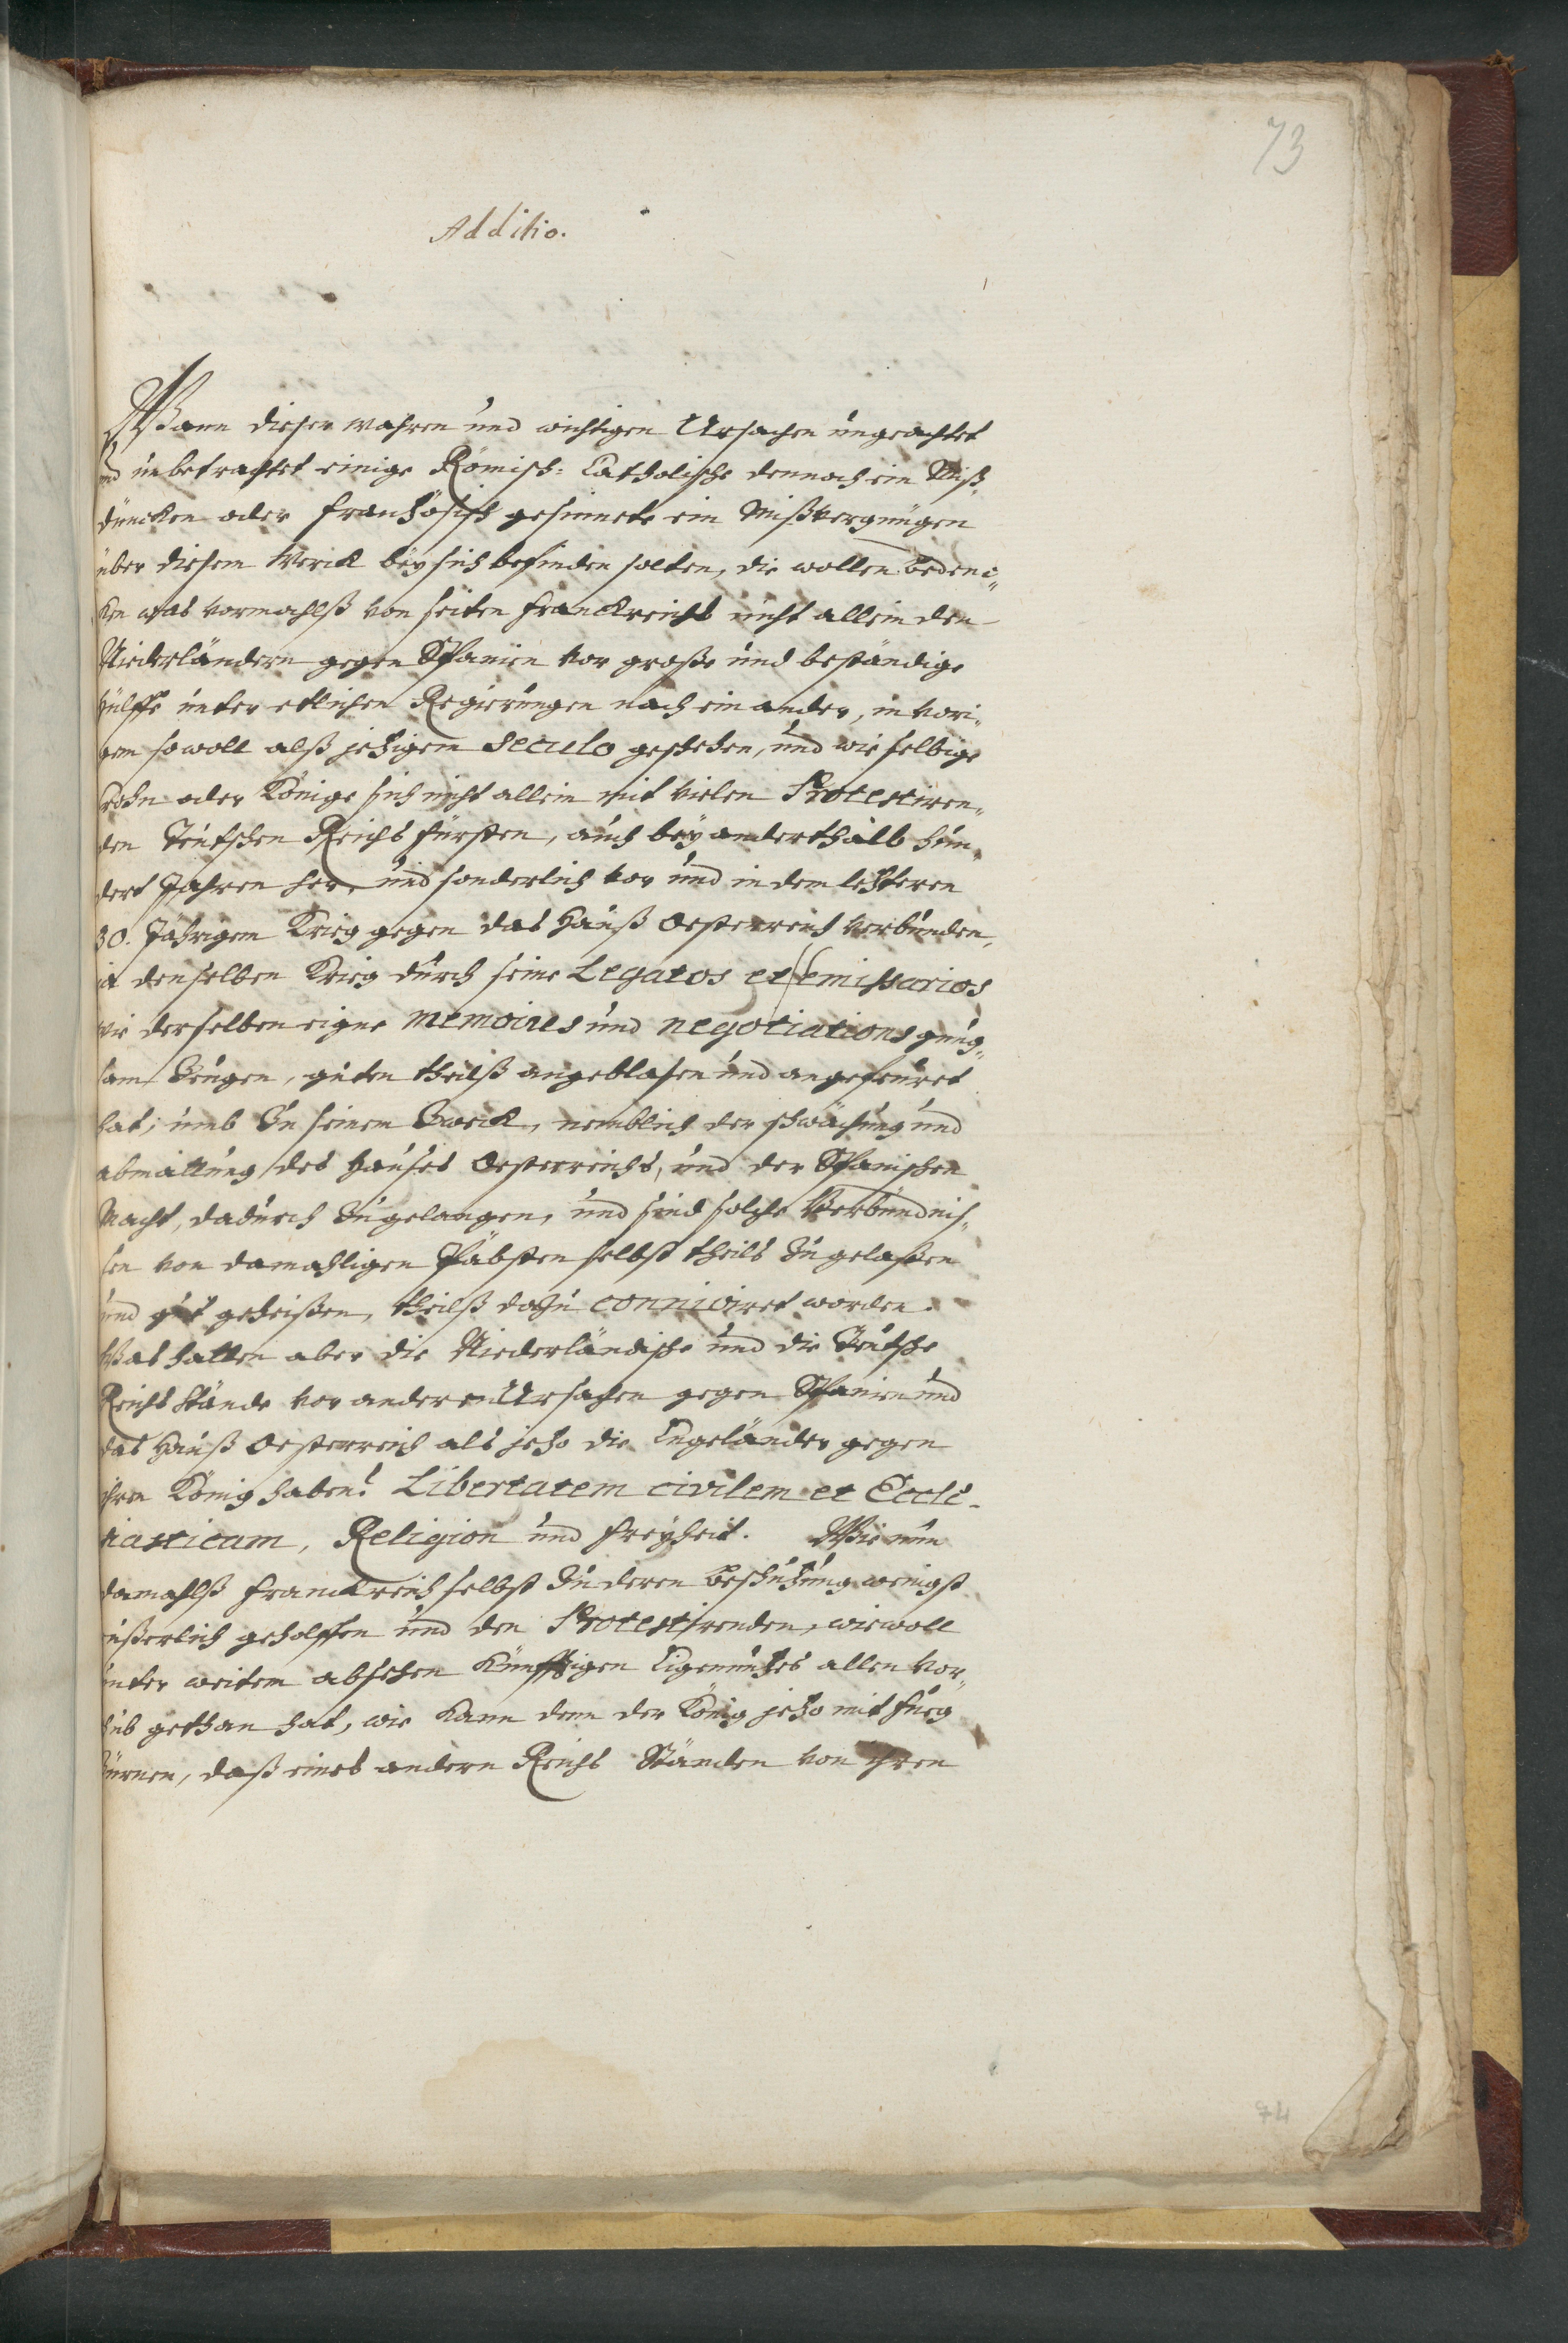 73
Additio.
Wann dieser wahren und wichtigen Ursachen ungeachtet
und unbetrachtet einige Römisch-Catholische dennoch ein Miß-
düncken oder Frantzösisch gesinnete ein Mißvergnügen
über diesem Werck bey sich befinden solten, die wollen bedenc-
ken was vormahlß von seiten Franckreichs nicht allein den
Niederländern gegen Spanien vor große und beständige
hülffe unter etlichen Regierungen nach einander, in vori-
gem sowoll alß jetzigem Seculo geschehen, und wie selbige
Crohn oder Könige sich nicht allein mit vielen Protestiren-
den Teutschen Reichs Fürsten, auch bey anderthalb hun-
dert Jahren her, und sonderlich vor und in dem letzteren
30. Jährigem Krieg gegen das Hauß Oesterreich verbunden,
ja denselben Krieg durch seine Legatos et emissarios
wie derselben eigne memoires und negotiations gnug-
sam Zeugen, guten theilß angeblasen und angefeuret
hat; umb Zu seinem Zweck, nemblich der schwächung und
abmattung des Hauses Oesterreichs, und der Spanischen
Macht, dadurch Zugelangen, und sind solche Verbündnis-
sen von damahligen Päbsten selbst theils Zugelaßen
und gut geheißen, theilß dazu conniviret worden.
Was hatten aber die Niederländische und die Teutsche
Reichs Stände vor andere Ursachen gegen Spanien und
das Hauß Oesterreich als jetzo die Engeländer gegen
ihren König haben? Libertatem civilem et Eccle-
siasticam, Religion und Freyheit. Wie nun
damahlß Franckreich selbst Zu deren Beschützung wenigst
äußerlich geholffen und den Protestirenden, wiewoll
unter weitem absehen Künfftigen Eigennutzes allen vor-
schub gethan hat, wie kann denn der König jetzo mit fueg
Zürnen, daß eines andern Reichs Ständen von ihren
74